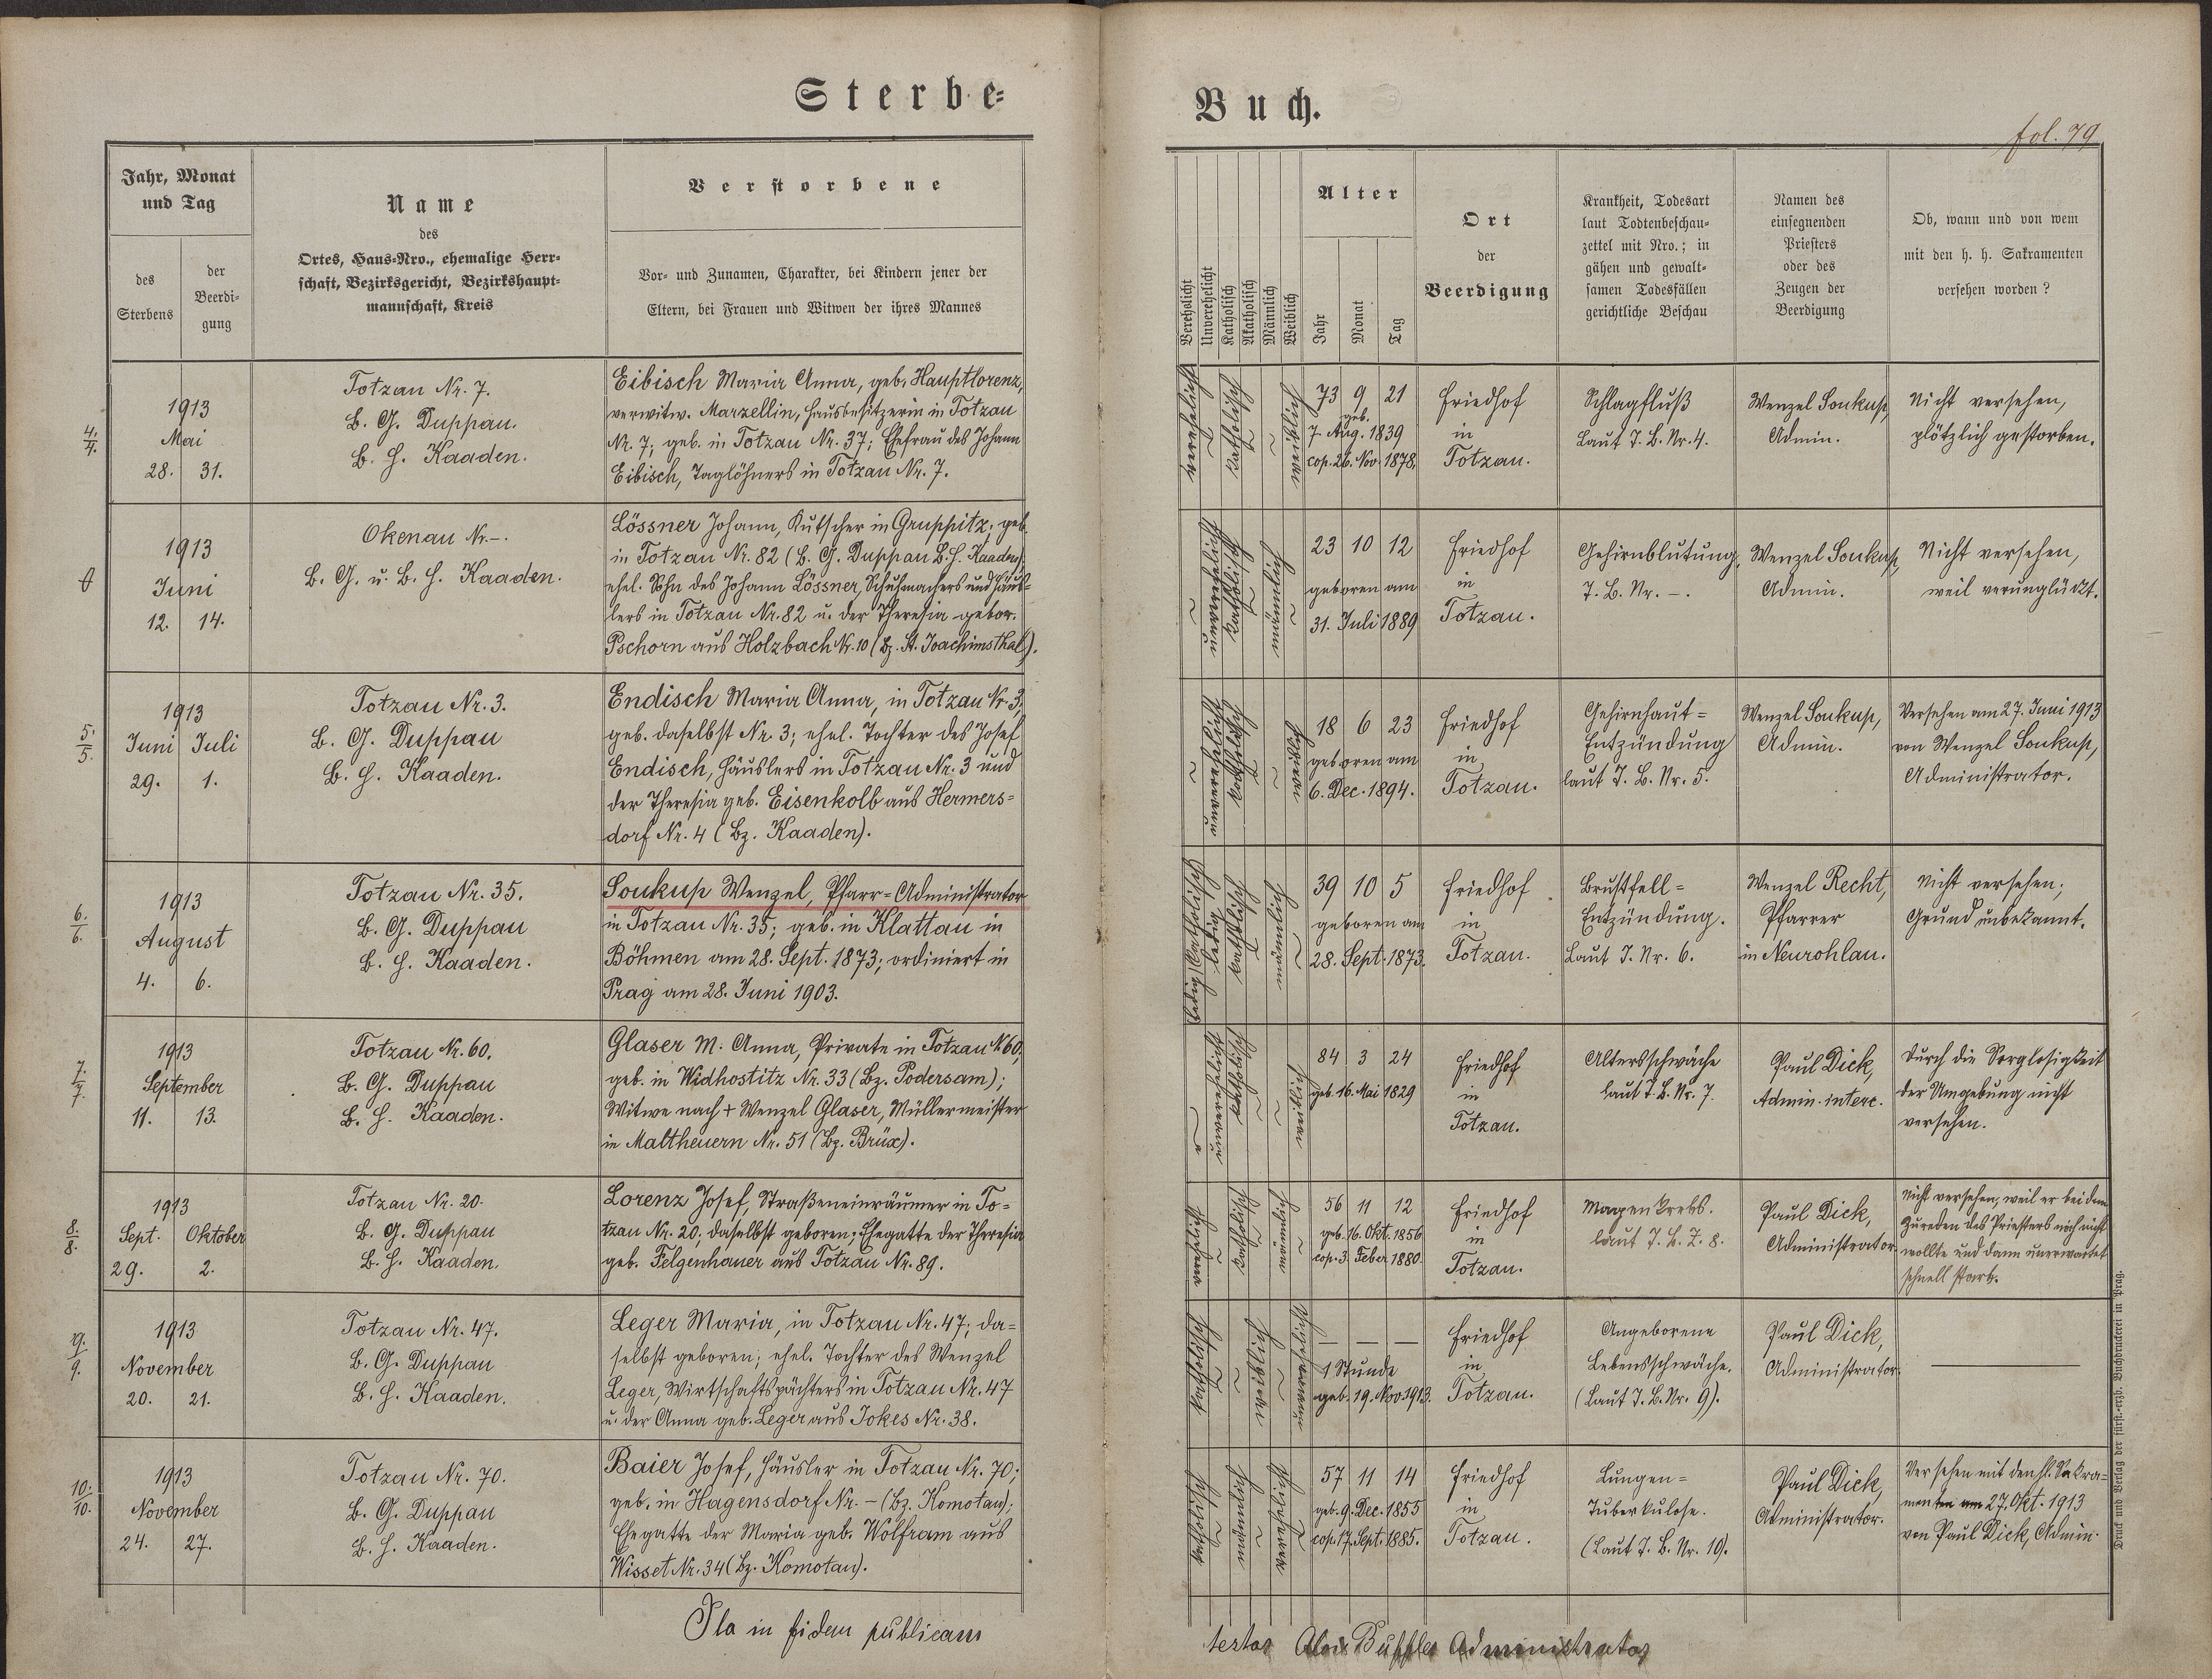 Sterbe-
Buch.
fol. 79
Jahr, Monat
und Tag
des
Sterbens
der
Beerdi-
gung
Name
des
Ortes, Haus-Nro., ehemalige Herr-
schaft, Bezirksgericht, Bezirkshaupt-
mannschaft, Kreis
Verstorbene
Vor- und Zunamen, Charakter, bei Kindern jener der
Eltern, bei Frauen und Witwen der ihres Mannes
Verehelicht
Unverehelicht
Katholisch
Akatholisch
Männlich
Weiblich
Alter
Jahr
Monat
Tag
Ort
der
Beerdigung
Krankheit, Todesart
laut Todtenbeschau-
zettel mit Nro.; in
gähen und gewalt-
samen Todesfällen
gerichtliche Beschau
Namen des
einsegnenden
Priesters
oder des
Zeugen der
Beerdigung
Ob, wann und von wem
mit den h. h. Sakramenten
versehen worden?
4./4.
1913
Mai
28. 31.
Totzau Nr. 7.
B. G. Duppau.
B. H. Kaaden.
Eibisch Maria Anna, geb. Hauptlorenz,
verwitw. Marzellin, Hausbesitzerin in Totzau
Nr. 7; geb. in Totzau Nr. 37; Ehefrau des Johann
Eibisch, Taglöhners in Totzau Nr. 7.
verehelicht
katholisch
weiblich
73 9 21
geb.
7. Aug. 1839
cop. 26. Nov. 1878.
Friedhof
in
Totzau.
Schlagfluß
Laut T. B. Nr. 4.
Wenzel Soukup,
Admin.
Nicht versehen,
plötzlich gestorben.
1913
Juni
12. 14.
Okenau Nr. -.
B. G. u. B. H. Kaaden.
Lössner Johann, Kutscher in Gruppitz; geb.
in Totzau Nr. 82 (B. G. Duppau B. H. Kaaden);
ehel. Sohn des Johann Lössner, Schuhmachers und Häus-
lers in Totzau Nr. 82 u. der Theresia gebor.
Pschorn aus Holzbach Nr. 10 (Bz. St. Joachimsthal).
unverehelicht
katholisch
männlich
23 10 12
geboren am
31. Juli 1889
Friedhof
in
Totzau.
Gehirnblutung,
T. B. Nr. -.
Wenzel Soukup,
Admin.
Nicht versehen,
weil verunglückt.
5./5.
1913
Juni Juli
29. 1.
Totzau Nr. 3.
B. G. Duppau
B. H. Kaaden.
Endisch Maria Anna, in Totzau Nr. 3;
geb. daselbst Nr. 3; ehel. Tochter des Josef
Endisch, Häuslers in Totzau Nr. 3 und
der Theresia geb. Eisenkolb aus Hermers-
dorf Nr. 4 (Bz. Kaaden).
unverehelicht
katholisch
weiblich
18 6 23
geboren am
6. Dec. 1894.
Friedhof
in
Totzau.
Gehirnhaut-
Entzündung
laut T. B. Nr. 5.
Wenzel Soukup,
Admin.
Versehen am 27. Juni 1913
von Wenzel Soukup,
Administrator.
6./6.
1913
August
4. 6.
Totzau Nr. 35.
B. G. Duppau
B. H. Kaaden.
Soukup Wenzel, Pfarr-Administrator
in Totzau Nr. 35; geb. in Klattau in
Böhmen am 28. Sept. 1873; ordiniert in
Prag am 28. Juni 1903.
ledig
katholisch
männlich
39 10 5
geboren am
28. Sept. 1873.
Friedhof
in
Totzau.
Brustfell-
Entzündung.
Laut T. Nr. 6.
Wenzel Recht,
Pfarrer
in Neurohlau.
Nicht versehen;
Grund unbekannt.
7./7.
1913
September
11. 13.
Totzau Nr. 60.
B. G. Duppau
B. H. Kaaden.
Glaser M. Anna, Private in Totzau N. 60;
geb. in Widhostitz Nr. 33 (Bz. Podersam);
Witwe nach + Wenzel Glaser, Müllermeister
in Maltheuern Nr. 51 (Bz. Brüx).
unverehelicht
katholisch
weiblich
84 3 24
geb. 16. Mai 1829
Friedhof
in
Totzau.
Altersschwäche
laut T. B. Nr. 7.
Paul Dick,
Admin. interc.
Durch die Sorglosigkeit
der Umgebung nicht
versehen.
8./8.
1913
Sept. Oktober
29. 2.
Totzau Nr. 20.
B. G. Duppau
B. H. Kaaden.
Lorenz Josef, Straßeneinräumer in To-
tzau Nr. 20, daselbst geboren; Ehegatte der Theresia
geb. Felgenhauer aus Totzau Nr. 89.
verehelicht
katholisch
männlich
56 11 12
geb. 16. Okt. 1856
cop. 3. Feber 1880.
Friedhof
in
Totzau.
Magenkrebs.
laut T. B. Z. 8.
Paul Dick,
Administrator.
Nicht versehen, weil er bei dem
Zureden des Priesters noch nicht
wollte und dann unerwartet
schnell starb.
9./9.
1913
November
20. 21.
Totzau Nr. 47.
B. G. Duppau
B. H. Kaaden.
Leger Maria, in Totzau Nr. 47; da-
selbst geboren; ehel. Tochter des Wenzel
Leger, Wirtschaftspächters in Totzau Nr. 47
u. der Anna geb. Leger aus Jokes Nr. 38.
katholisch
weiblich
unverehelicht
— — —
1 Stunde
geb. 19. Nov. 1913.
Friedhof
in
Totzau.
Angeborene
Lebensschwäche.
(Laut T. B. Nr. 9).
Paul Dick,
Administrator.
—
10./10.
1913
November
24. 27.
Totzau Nr. 70.
B. G. Duppau
B. H. Kaaden.
Baier Josef, Häusler in Totzau Nr. 70;
geb. in Hagensdorf Nr. - (Bz. Komotau);
Ehegatte der Maria geb. Wolfram aus
Wisset Nr. 34 (Bz. Komotau).
katholisch
männlich
verehelicht
57 11 14
geb. 9. Dec. 1855
cop. 17. Sept. 1885.
Friedhof
in
Totzau.
Lungen-
Tuberkulose.
(Laut T. B. Nr. 10).
Paul Dick,
Administrator.
Versehen mit den hl. Sakra-
menten am 27. Okt. 1913
von Paul Dick, Admin.
Ita in fidem publicam
testor Alois Administrator
Druck und Verlag der fürst.-erzb. Buchdruckerei in Prag.